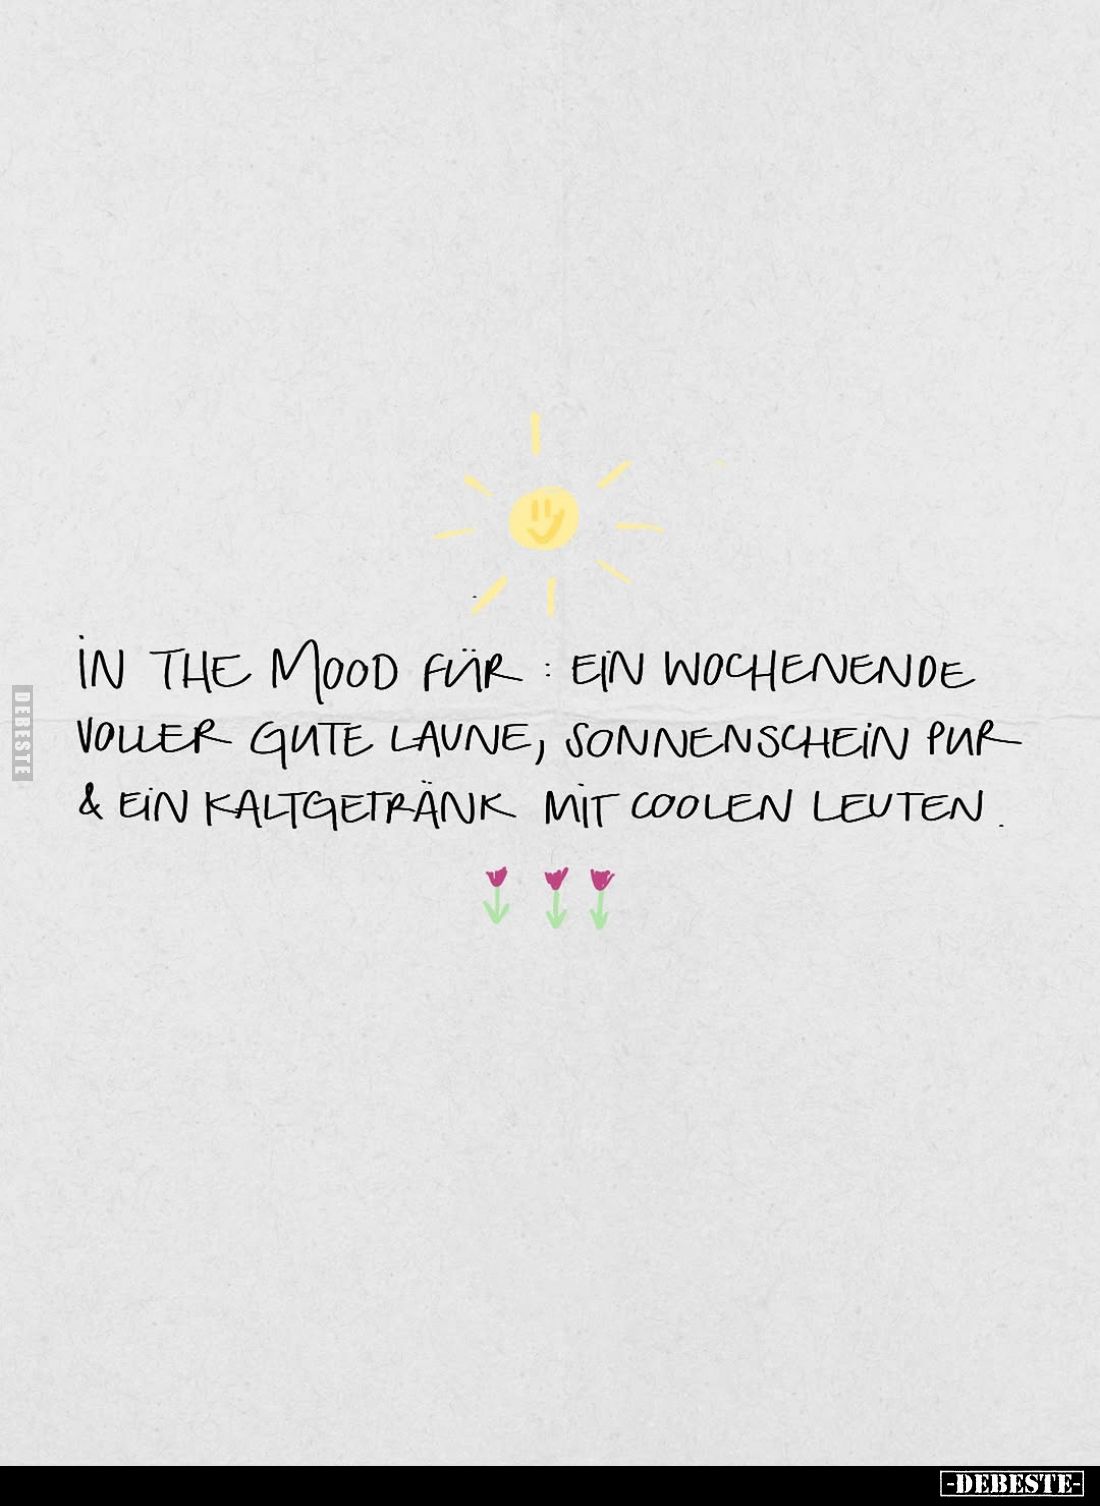 IN THE MOOD FÜR : EIN WOCHENENDE
VOLLER GUTE LAUNE, SONNENSCHEIN PUR
& EIN KALTGETRÄNK MIT COOLEN LEUTEN .
DEBESTE
-DEBESTE-